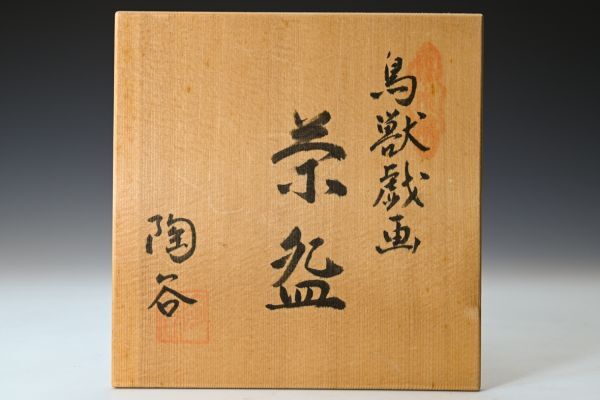 鳥獣戯画
茶盌
陶谷